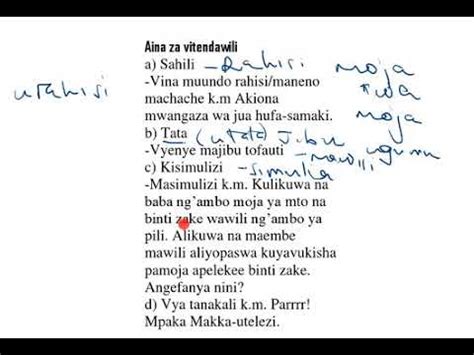 Aina za vitendawili
a) Sahili - Rahisi moja
urahisi -Vina muundo rahisi/maneno
machache k.m Akiona
mwangaza wa jua hufa-samaki. moja
b) Tata (utata) Jibu
-Vyenye majibu tofauti - mawili ugumu
c) Kisimulizi - simulia
-Masimulizi k.m. Kulikuwa na
baba ng'ambo moja ya mto na
binti zake wawili ng'ambo ya
pili. Alikuwa na maembe
mawili aliyopaswa kuyavukisha
pamoja apelekee binti zake.
Angefanya nini?
d) Vya tanakali k.m. Parrr!
Mpaka Makka-utelezi.